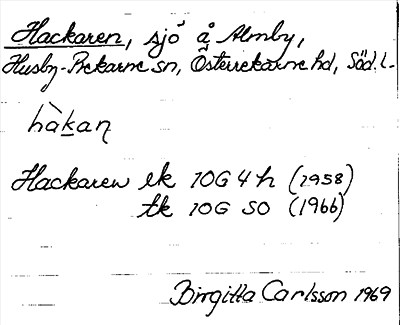 Hackaren, sjö å Almby,
Husby-Rekarne sn, Österrekarne hd, Söd. l.
hàkan
Hackaren ek 10G 4h (1958)
tk 10G SO (1966)
Birgitta Carlsson 1969